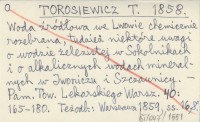 TOROSIEWICZ T. 1858.
Woda źródłowa we Lwowie chemicznie
rozebrana tudzież niektóre uwagi
o wodzie żelezistej w Sokolnikach
i o alkalicznych wodach mineral-
nych w Iwoniczu i Szczawnicy. –
Pam. Tow. Lekarskiego Warsz. 40:
165-180. Też odb.: Warszawa 1859, ss. 16, 8.